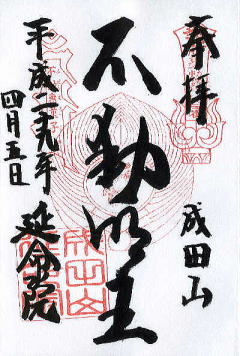 奉拝
成田山
不動明王
平成二十九年
四月五日
延命院